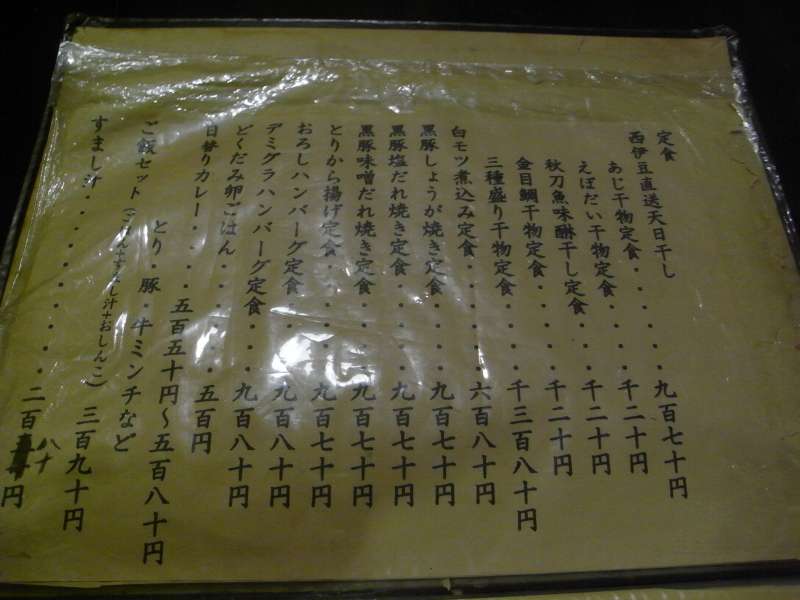 定食
西伊豆直送天日干し
あじ干物定食・・・・・九百七十円
えぼだい干物定食・・・・千二十円
秋刀魚味醂干し定食・・・千二十円
金目鯛干物定食・・・・千二十円
三種盛り干物定食・・・・千三百八十円
白モツ煮込み定食・・・・六百八十円
黒豚しょうが焼き定食・・・九百七十円
黒豚塩だれ焼き定食・・・九百七十円
黒豚味噌だれ焼き定食・・・九百七十円
とりから揚げ定食・・・・九百七十円
おろしハンバーグ定食・・・九百八十円
デミグラハンバーグ定食・・・九百八十円
どくだみ卵ごはん・・・・・五百円
日替りカレー・・・・五百五十円〜五百八十円
とり・豚・牛ミンチなど
ご飯セット(ごはん+すまし汁+おしんこ) 三百九十円
すまし汁・・・・・・・・二百八十円